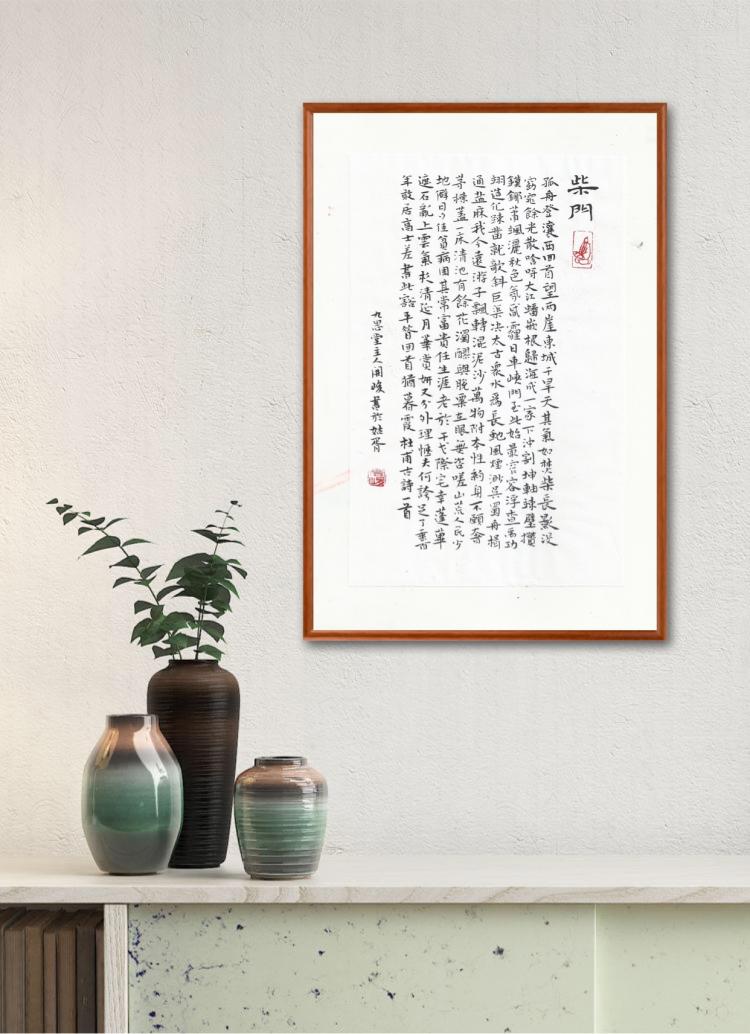 柴門
孤舟登瀼西回首望兩崖東城干旱天其氣如焚柴長影没
窈窕餘光散唅呀大江蟠嵌根歸海成一家下沖割坤軸竦壁攢
鏌鋣蕭颯灑秋色氛昏霾日車峽門至此始最窄容浮查禹功
翊造化疎鑿就欹斜巨渠决太古衆水為長虵風煙渺吳蜀舟楫
通盐麻我今遠游子飄轉混泥沙萬物附本性約身不願奢
茅棟蓋一床清池有餘花濁醪與脫粟在眼無咨嗟山荒人民少
地僻日夕佳貧病固其常富貴任生涯老於干戈際宅幸蓬蓽
遮石亂上雲氣杉清延月華賞妍又分外理愜夫何誇足了垂百
年敢居高士差書此豁平昔回首猶暮霞 杜甫古詩一首
九思堂主人周峻書於姑胥